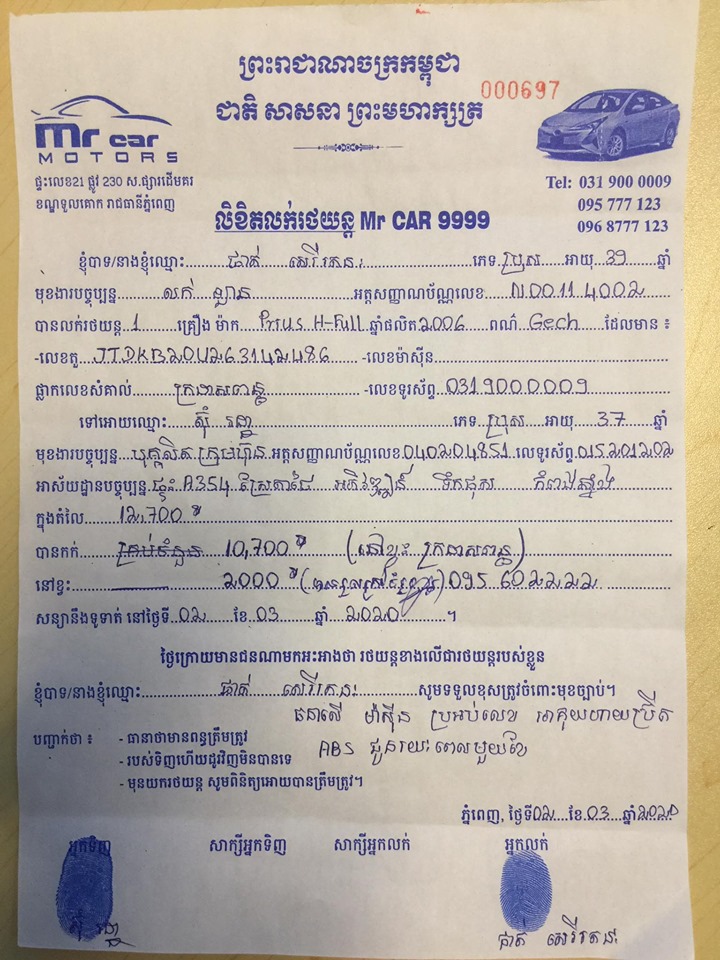 ព្រះរាជាណាចក្រកម្ពុជា
ជាតិ សាសនា ព្រះមហាក្សត្រ
000697
Mr car
MOTORS
ផ្ទះលេខ21 ផ្លូវ 230 ស.ផ្សារដើមគរ
ខណ្ឌទួលគោក រាជធានីភ្នំពេញ
Tel: 031 900 0009
095 777 123
096 8777 123
លិខិតលក់រថយន្ត Mr CAR 9999
ខ្ញុំបាទ/នាងខ្ញុំឈ្មោះ ផាត់ សេរីរតនៈ ភេទ ប្រុស អាយុ 39 ឆ្នាំ
មុខងារបច្ចុប្បន្ន លក់ ឡាន អត្តសញ្ញាណប័ណ្ណលេខ N00114002
បានលក់រថយន្ត 1 គ្រឿង ម៉ាក Prius H-Full ឆ្នាំផលិត 2006 ពណ៌ Gech ដែលមាន ៖
-លេខតួ JTDKB20U263142486 -លេខម៉ាស៊ីន
ផ្លាកលេខសំគាល់ ក្រដាសពន្ធ -លេខទូរស័ព្ទ 0319000009
ទៅអោយឈ្មោះ ស៊ុំ ភេទ ប្រុស អាយុ 37 ឆ្នាំ
មុខងារបច្ចុប្បន្ន បុគ្គលិក ក្រុមហ៊ុន អត្តសញ្ញាណប័ណ្ណលេខ 040204851 លេខទូរស័ព្ទ 015201202
អាស័យដ្ឋានបច្ចុប្បន្ន ផ្ទះ A354 អភិវឌ្ឍន៍ ទឹកផុស កំពង់ឆ្នាំង
ក្នុងតំលៃ 12,700 $
បានកក់ គ្រប់ចំនួន 10,700 $ (នៅខ្វះ ក្រដាសពន្ធ)
នៅខ្វះ 2000 $ 095 602222
សន្យានឹងទូទាត់ នៅថ្ងៃទី 02 ខែ 03 ឆ្នាំ 2020 ។
ថ្ងៃក្រោយមានជនណាមកអះអាងថា រថយន្តខាងលើជារថយន្តរបស់ខ្លួន
ខ្ញុំបាទ/នាងខ្ញុំឈ្មោះ ផាត់ សេរីរតនៈ សូមទទួលខុសត្រូវចំពោះមុខច្បាប់។
ធានាលើ ម៉ាស៊ីន ប្រអប់លេខ អាគុយហាយប្រ៊ីត
ABS ជូនរយៈពេលមួយខែ
បញ្ជាក់ថា ៖ - ធានាថាមានពន្ធត្រឹមត្រូវ
- របស់ទិញហើយដូរវិញមិនបានទេ
- មុនយករថយន្ត សូមពិនិត្យអោយបានត្រឹមត្រូវ។
ភ្នំពេញ, ថ្ងៃទី 02 ខែ 03 ឆ្នាំ 2020
អ្នកទិញ សាក្សីអ្នកទិញ សាក្សីអ្នកលក់ អ្នកលក់
ស៊ុំ ផាត់ សេរីរតនៈ